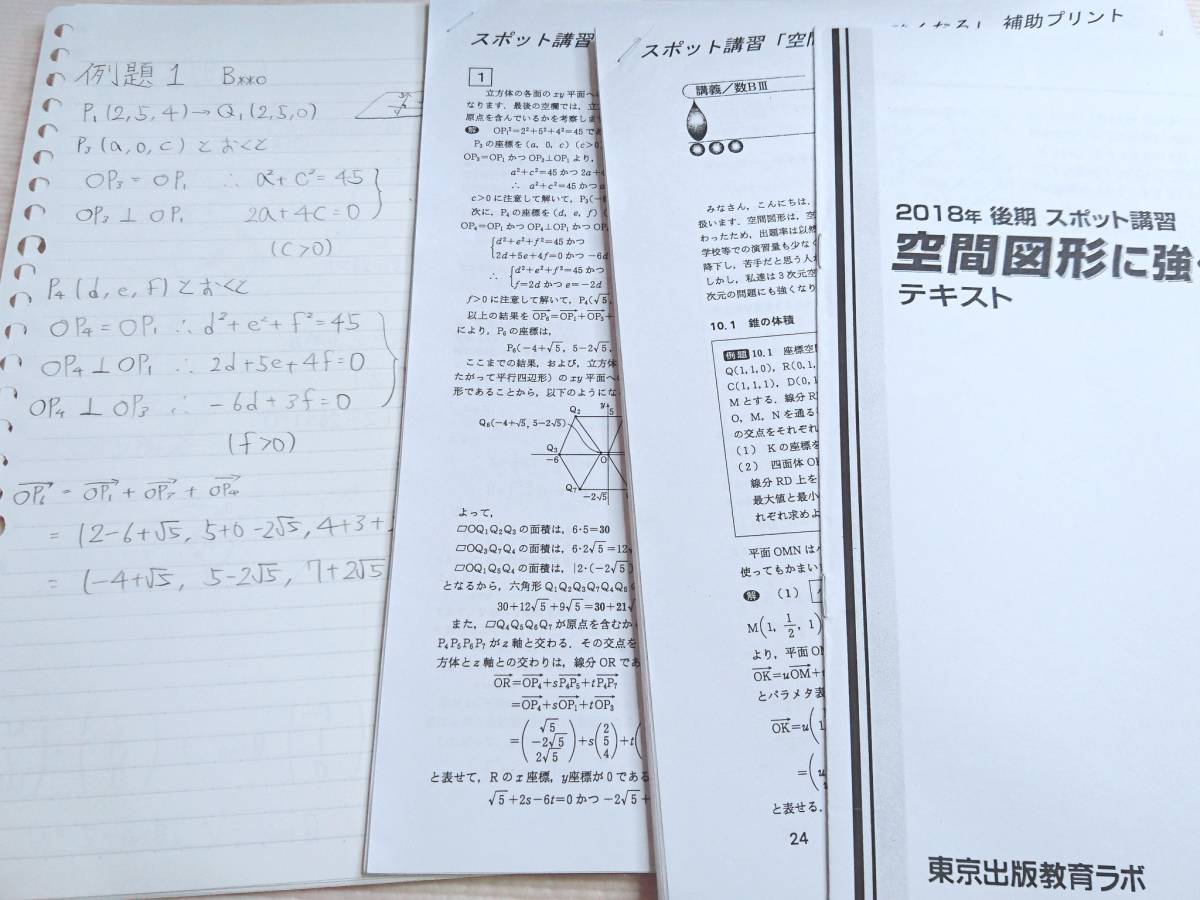 例題1 B**0
P₁(2,5,4)→Q₁(2,5,0)
P₃(a,0,c)とおくと
OP₃=OP₁ ∴a²+c²=45
OP₃⊥OP₁ 2a+4c=0
(c>0)
P₄(d,e,f)とおくと
OP₄=OP₁ ∴d²+e²+f²=45
OP₄⊥OP₁ ∴2d+5e+4f=0
OP₄⊥OP₃ ∴-6d+3f=0
(f>0)
=(2-6+√5, 5+0-2√5, 4+3+
=(-4+√5, 5-2√5, 7+2√5
スポット講習
1
立方体の各面のxy平面へ
なります．最後の空欄では，立
原点を含んでいるかを考察しま
解 OP₁²=2²+5²+4²=45であ
P₃の座標を(a, 0, c)(c>0
OP₃=OP₁かつOP₃⊥OP₁より，
a²+c²=45かつ2a+4
∴ a²+c²=45かつa
c>0に注意して解いて，P₃(-6
次に，P₄の座標を(d, e, f)(
OP₄=OP₁かつOP₄⊥OP₁かつOP
d²+e²+f²=45かつ
2d+5e+4f=0かつ-6d
∴ d²+e²+f²=45かつ
f=2dかつe=-2d
f>0に注意して解いて，P₄(√5,
以上の結果をOP₆=OP₁+OP₃+
により，P₆の座標は，
P₆(-4+√5, 5-2√5,
ここまでの結果，および，立方体
たがって平行四辺形）のxy平面へ
形であることから，以下のようにな
Q₂
y
5
Q₆(-4+√5, 5-2√5)
Q₃
-6
O
Q₇
-2√5
よって，
▱OQ₁Q₂Q₃の面積は，6・5=30
▱OQ₃Q₇Q₄の面積は，6・2√5=12
▱OQ₁Q₅Q₄の面積は，|2・(-2√5)
となるから，六角形Q₁Q₂Q₃Q₇Q₄Q₅
30+12√5+9√5=30+21
また，▱Q₄Q₅Q₆Q₇が原点を含むか
P₄P₅P₆P₇がz軸と交わる．その交点を
方体とz軸との交わりは，線分ORであ
OR=OP₄+sP₄P₅+tP₄P₇
=OP₄+sOP₁+tOP₃
=(√5 -2√5 2√5)+s(2 5 4)+t(
と表せて，Rのx座標，y座標が0である
√5+2s-6t=0かつ-2√5+
スポット講習「空間
講義／数BⅢ
みなさん，こんにちは．
扱います．空間図形は，空
わったため，出題率は以然
学校等での演習量も少なく
降下し，苦手だと思う人が
しかし，私達は3次元空
次元の問題にも強くなり
10.1 錐の体積
例題10.1 座標空間
Q(1,1,0), R(0,1,
C(1,1,1), D(0,1
Mとする．線分R
O，M，Nを通る
の交点をそれぞれ
(1) Kの座標を
(2) 四面体O
線分RD上を
最大値と最小
れぞれ求めよ
平面OMNは
使ってもかまい
解 (1)
M(1, 1/2, 1)
より，平面O
OK=uOM+
とパラメタ表
OK=u(1
=(u
と表せる．
24
補助プリント
2018年 後期 スポット講習
空間図形に強
テキスト
東京出版教育ラボ